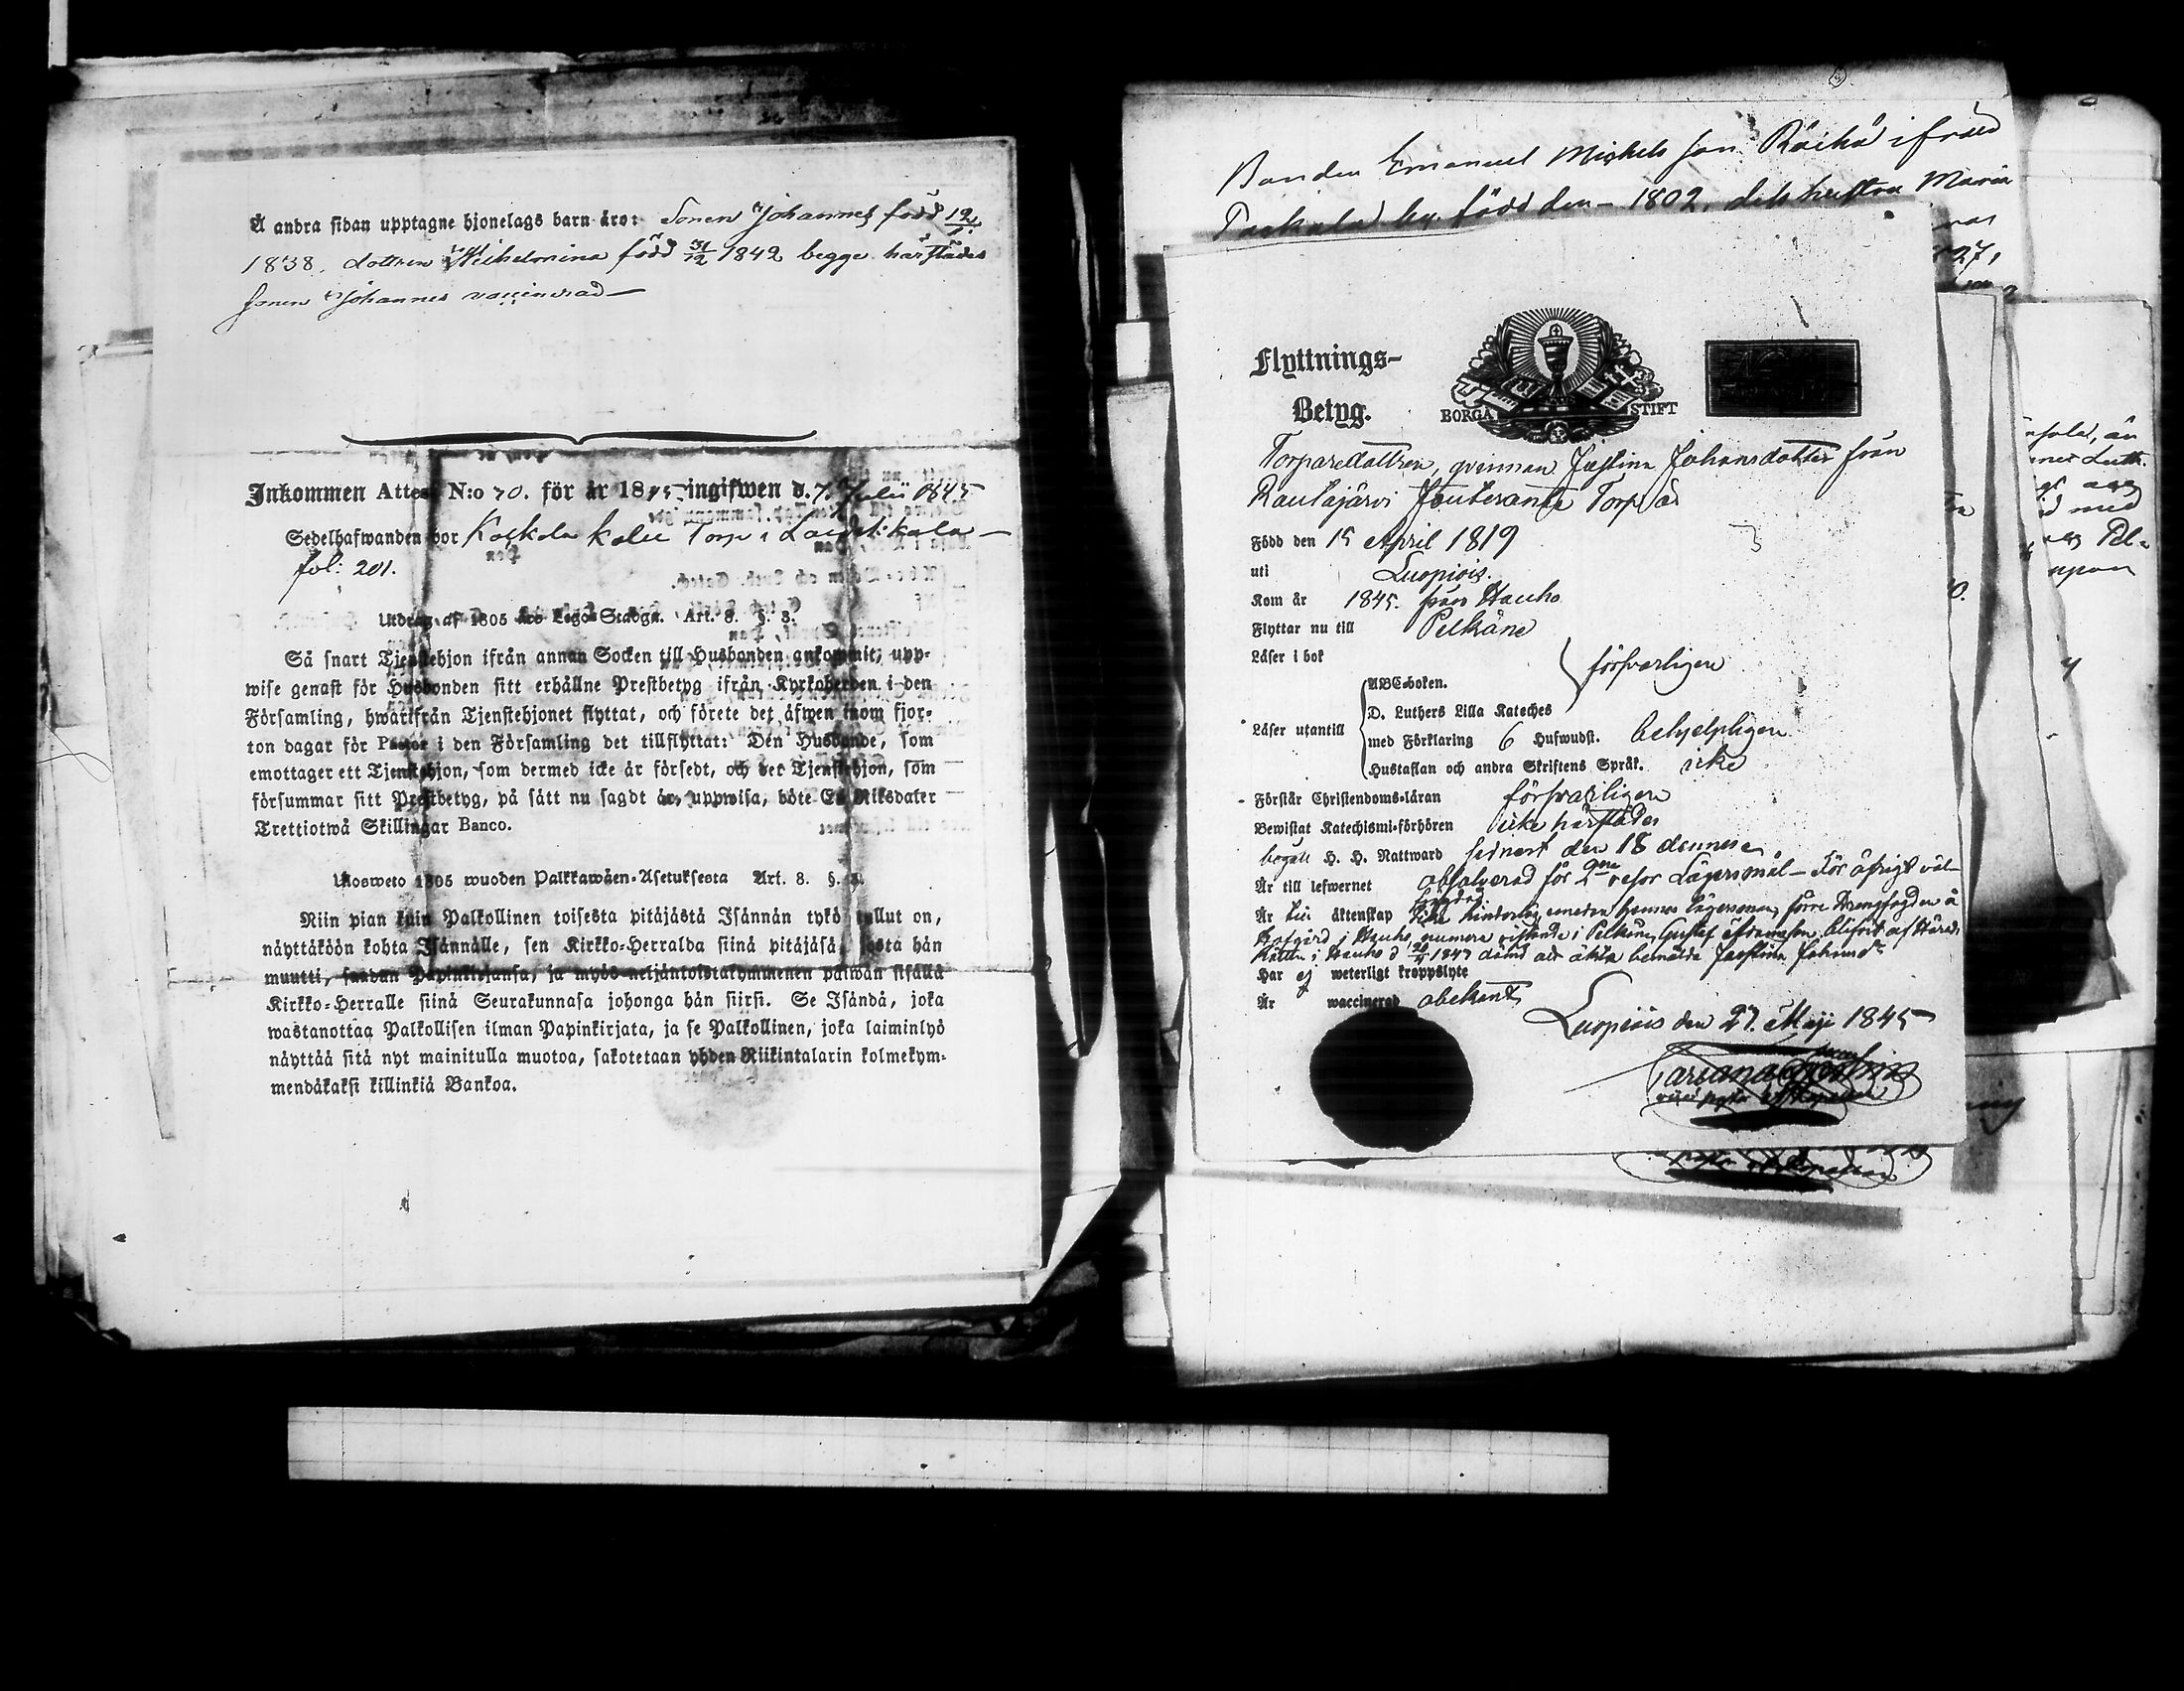 Å andra sidan upptagne hjonelags barn äro: Sonen Johannes född 12/7
1838, dottren Wilhelmina född 31/12 1842 begge härstädes
Sonen Johannes vaccinerad —
Inkommen Attest N:o 70. för år 1845 ingifwen d. 7 Julii 1845
Sedelhafwanden bor Torp i
fol: 201.
Utdrag af 1805 års Lego-Stadga. Art. 8. §. 3.
Så snart Tjenstehjon ifrån annan Socken till Husbonden ankommit, upp-
wise genast för Husbonden sitt erhållne Prestbetyg ifrån Kyrkoherden i den
Församling, hwarifrån Tjenstehjonet flyttat, och förete det äfwen inom fjor-
ton dagar för Pastor i den Församling det tillflyttat: Den Husbonde, som
emottager ett Tjenstehjon, som dermed icke är försedt, och det Tjenstehjon, som
försummar sitt Prestbetyg, på sätt nu sagdt är, uppwisa, böte En Riksdaler
Trettiotwå Skillingar Banco.
Ulosweto 1805 wuoden Palkkawäen-Asetuksesta Art. 8. §. 3.
Niin pian kuin Palkollinen toisesta pitäjästä Isännän tykö tullut on,
näyttäköön kohta Isännälle, sen Kirkko-Herralda siinä pitäjäsä, josta hän
muutti, saadun Papinkirjansa, ja myös neljäntoistakymmenen päiwän sisällä
Kirkko-Herralle siinä Seurakunnasa johonga hän siirsi. Se Isändä, joka
wastanottaa Palkollisen ilman Papinkirjata, ja se Palkollinen, joka laiminlyö
näyttää sitä nyt mainitulla muotoa, sakotetaan yhden Riikintalarin kolmekym-
mendäkaksi killinkiä Bankoa.
Bonden Emanuel Michels son Räihä ifrån
by, född den — 1802, dess hustru Maria
Flyttnings-
Betyg.
BORGÅ STIFT
Torparedottren, qvinnan Justina Johansdotter från
Rautajärvi Torp är
Född den 15 April 1819
uti Luopiois.
Kom år 1845. från Hauho
Flyttar nu till Pelkäne
Läser i bok försvarligen
ABC-boken.
D. Luthers Lilla Kateches
Läser utantill med Förklaring 6 Hufwudst. behjelpligen
Hustaflan och andra Skriftens Språk. icke
Förstår Christendoms-läran försvarligen
Bewistat Katechismi-förhören icke härstädes
begått H. H. Nattward sednast den 18 dennes
Är till lefwernet absolverad för 2ne resor Lägersmål — För öfrigt väl
Är till äktenskap hinderlig, emedan hennes lägersman, förre Drengfogden å
Hofgård i Hauho, numera i Pelkäne, Gustaf blifvit af Härads
Rätten i Hauho d 1845 dömd att äkta bemälde Justina Johansdr
Har ej weterligt kroppslyte
Är waccinerad obekant
Luopiois den 27. Maji 1845